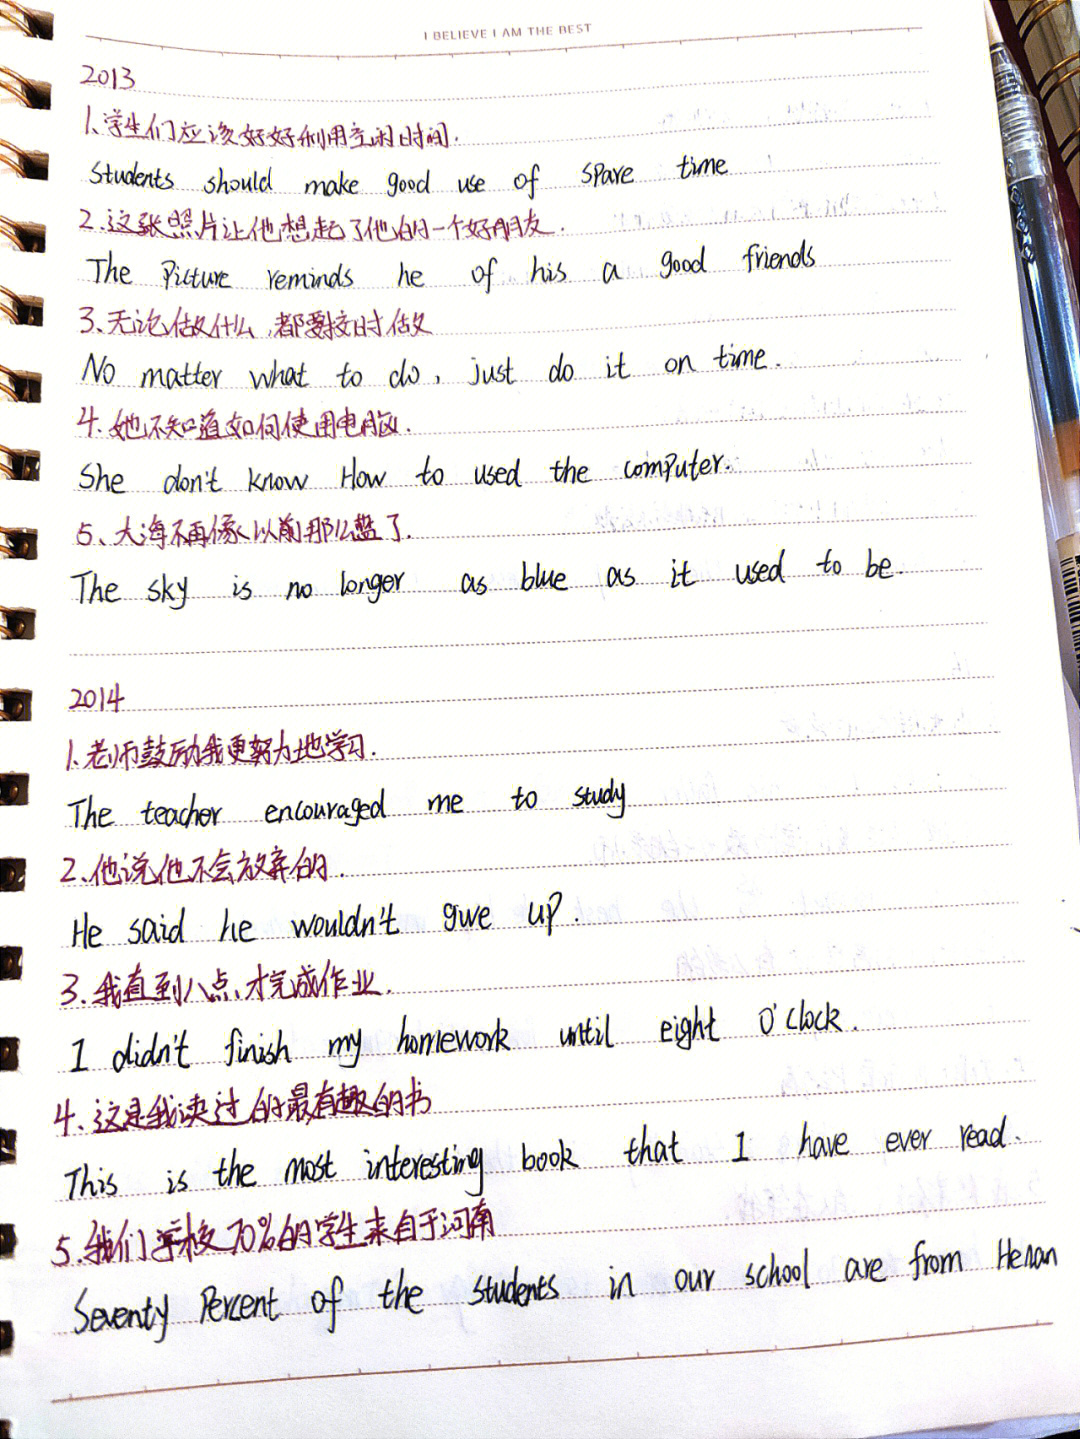 I BELIEVE I AM THE BEST
2013
1、学生们应该好好利用空闲时间.
Students should make good use of spare time
2.这张照片让他想起了他的一个好朋友.
The Picture reminds he of his a good friends
3、无论做什么,都要按时做
No matter what to do, just do it on time.
4.她不知道如何使用电脑.
She don't know How to used the computer.
5、大海不再像以前那么蓝了.
The sky is no longer as blue as it used to be.
2014
1.老师鼓励我更努力地学习.
The teacher encouraged me to study
2.他说他不会放弃的.
He said he wouldn't give up.
3.我直到八点,才完成作业.
I didn't finish my homework until eight O'clock.
4.这是我读过的最有趣的书
This is the most interesting book that I have ever read.
5.我们学校70%的学生来自于河南
Seventy Percent of the students in our school are from Henan